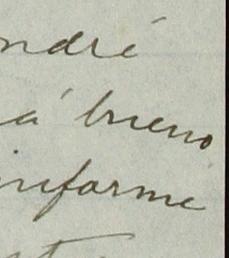 ndré
á bueno
informe